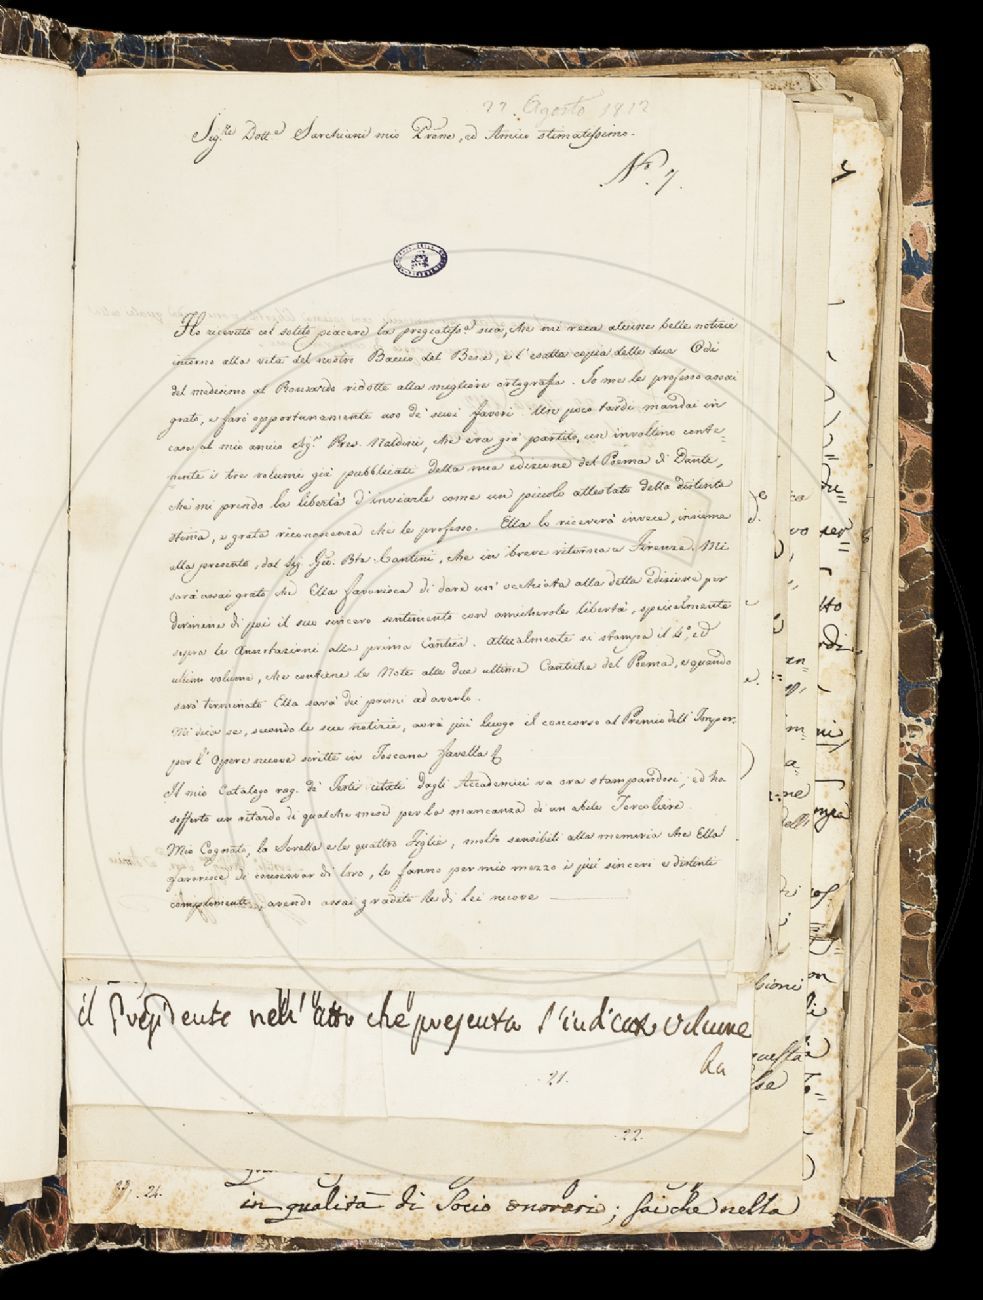 27. Agosto 1812
Sig.re Dott.e Sarchiani mio Prone, ed Amico stimatissimo.
N.o 7.
Ho ricevuto col solito piacere la pregiatiss.a sua, che mi reca alcune belle notizie
intorno alla vita del nostro Baccio del Bene, e l'esatta copia delle due Odi
del medesimo al Ronsardo ridotte alla migliore ortografia. Io me le professo assai
grato, e farò opportunamente uso de' suoi favori. Un poco tardi mandai in
casa al mio amico Sig.r Pres. Naldini, che era già partito, un involtino conte=
nente i tre volumi già pubblicati della mia edizione del Poema di Dante,
che mi prendo la libertà d'inviarle come un piccolo attestato della distinta
stima, e grata riconoscenza che le professo. Ella lo riceverà invece, insieme
alla presente, dal Sig. Gio. Bta. Cantini, che in breve ritorna a Firenze. Mi
sarà assai grato che Ella favorisca di dare un' occhiata alla detta edizione per
dirmene di poi il suo sincero sentimento con amichevole libertà, specialmente
sopra le Annotazioni alla prima Cantica. Attualmente si stampa il 4.o, ed
ultimo volume, che contiene le Note alle due ultime Cantiche del Poema, e quando
sarà terminato Ella sarà dei primi ad averlo.
Mi dica se, secondo le sue notizie, avrà più luogo il concorso al Premio dell' Imper.
per l' Opere nuove scritte in Toscana favella
Il mio Catalogo rag. de' Testi citati dagli Accademici va ora stampandosi, ed ha
sofferto un ritardo di qualche mese per la mancanza di un abile Torcoliere.
Mio Cognato, la Sorella e le quattro Figlie, molto sensibili alla memoria che Ella
favorisce di conservar di loro, le fanno per mio mezzo i più sinceri e distinti
complimenti, avendo assai gradito le di Lei nuove
il Presidente nell' atto che presenta l'indicato volume
ha
21.
22.
24.
in qualità di Socio onorario; sai che nella